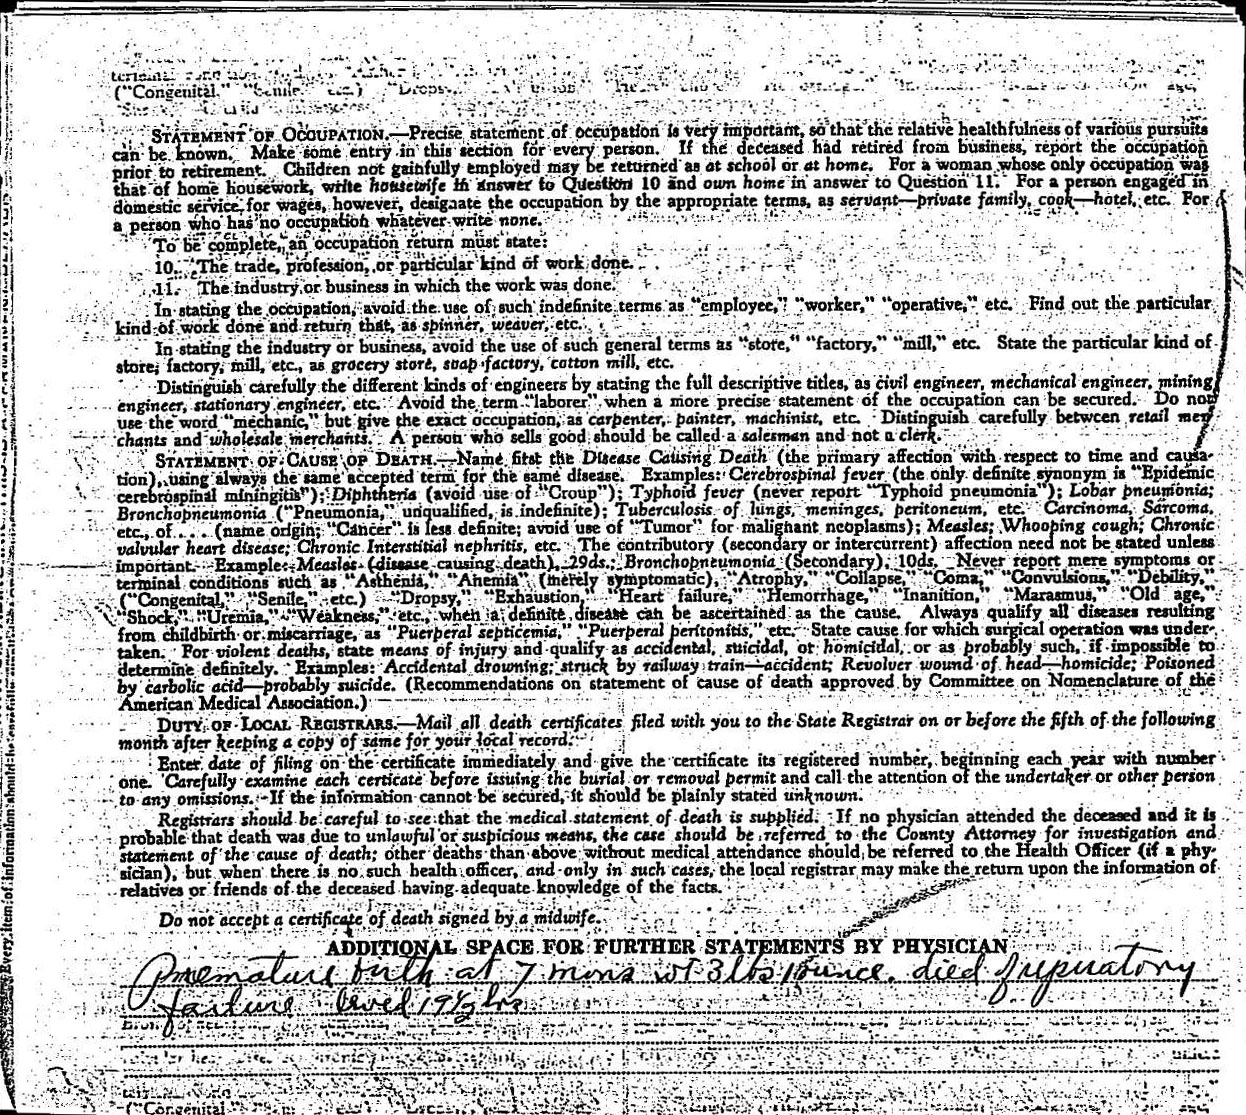 ("Congenital," "Senile," etc.) "Dropsy,"
STATEMENT OF OCCUPATION.—Precise statement of occupation is very important, so that the relative healthfulness of various pursuits
can be known. Make some entry in this section for every person. If the deceased had retired from business, report the occupation
prior to retirement. Children not gainfully employed may be returned as at school or at home. For a woman whose only occupation was
that of home housework, write housewife in answer to Question 10 and own home in answer to Question 11. For a person engaged in
domestic service for wages, however, designate the occupation by the appropriate terms, as servant—private family, cook—hotel, etc. For
a person who has no occupation whatever write none.
To be complete, an occupation return must state:
10. The trade, profession, or particular kind of work done.
11. The industry or business in which the work was done.
In stating the occupation, avoid the use of such indefinite terms as "employee," "worker," "operative," etc. Find out the particular
kind of work done and return that, as spinner, weaver, etc.
In stating the industry or business, avoid the use of such general terms as "store," "factory," "mill," etc. State the particular kind of
store, factory, mill, etc., as grocery store, soap factory, cotton mill, etc.
Distinguish carefully the different kinds of engineers by stating the full descriptive titles, as civil engineer, mechanical engineer, mining
engineer, stationary engineer, etc. Avoid the term "laborer" when a more precise statement of the occupation can be secured. Do not
use the word "mechanic," but give the exact occupation, as carpenter, painter, machinist, etc. Distinguish carefully between retail mer-
chants and wholesale merchants. A person who sells good should be called a salesman and not a clerk.
STATEMENT OF CAUSE OF DEATH.—Name first the Disease Causing Death (the primary affection with respect to time and causa-
tion), using always the same accepted term for the same disease. Examples: Cerebrospinal fever (the only definite synonym is "Epidemic
cerebrospinal miningitis"); Diphtheria (avoid use of "Croup"); Typhoid fever (never report "Typhoid pneumonia"); Lobar pneumonia;
Bronchopneumonia ("Pneumonia," unqualified, is indefinite); Tuberculosis of lungs, meninges, peritoneum, etc. Carcinoma, Sarcoma,
etc., of . . . . (name origin; "Cancer" is less definite; avoid use of "Tumor" for malignant neoplasms); Measles; Whooping cough; Chronic
valvular heart disease; Chronic Interstitial nephritis, etc. The contributory (secondary or intercurrent) affection need not be stated unless
important. Example: Measles (disease causing death), 29ds.; Bronchopneumonia (Secondary), 10ds. Never report mere symptoms or
terminal conditions such as "Asthenia," "Anemia" (merely symptomatic), "Atrophy," "Collapse," "Coma," "Convulsions," "Debility,"
("Congenital," "Senile," etc.) "Dropsy," "Exhaustion," "Heart failure," "Hemorrhage," "Inanition," "Marasmus," "Old age,"
"Shock," "Uremia," "Weakness," etc., when a definite disease can be ascertained as the cause. Always qualify all diseases resulting
from childbirth or miscarriage, as "Puerperal septicemia," "Puerperal peritonitis," etc. State cause for which surgical operation was under-
taken. For violent deaths, state means of injury and qualify as accidental, suicidal, or homicidal, or as probably such, if impossible to
determine definitely. Examples: Accidental drowning; struck by railway train—accident; Revolver wound of head—homicide; Poisoned
by carbolic acid—probably suicide. (Recommendations on statement of cause of death approved by Committee on Nomenclature of the
American Medical Association.)
DUTY OF LOCAL REGISTRARS.—Mail all death certificates filed with you to the State Registrar on or before the fifth of the following
month after keeping a copy of same for your local record.
Enter date of filing on the certificate immediately and give the certificate its registered number, beginning each year with number
one. Carefully examine each certicate before issuing the burial or removal permit and call the attention of the undertaker or other person
to any omissions. If the information cannot be secured, it should be plainly stated unknown.
Registrars should be careful to see that the medical statement of death is supplied. If no physician attended the deceased and it is
probable that death was due to unlawful or suspicious means, the case should be referred to the County Attorney for investigation and
statement of the cause of death; other deaths than above without medical attendance should be referred to the Health Officer (if a phy-
sician), but when there is no such health officer, and only in such cases, the local registrar may make the return upon the information of
relatives or friends of the deceased having adequate knowledge of the facts.
Do not accept a certificate of death signed by a midwife.
ADDITIONAL SPACE FOR FURTHER STATEMENTS BY PHYSICIAN
Premature birth at 7 mons wt 3 lbs 1 ounce. died of respiratory
failure lived 19½ hrs
("Congenital,"
Every item of information should be